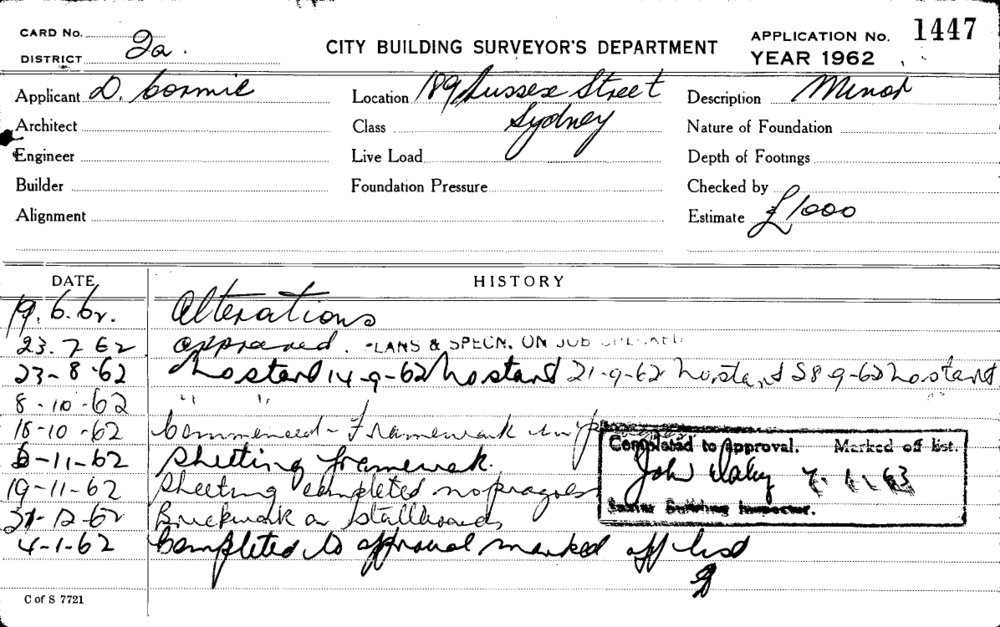 CARD No.
DISTRICT 2a.
CITY BUILDING SURVEYOR'S DEPARTMENT
APPLICATION No. 1447
YEAR 1962
Applicant D. Cormie
Location 189 Sussex Street
Description Minor
Architect
Class Sydney
Nature of Foundation
Engineer
Live Load
Depth of Footings
Builder
Foundation Pressure
Checked by
Alignment
Estimate £1000
DATE HISTORY
19.6.62. Alterations
23.7.62 approved. PLANS & SPECN. ON JOB
23-8-62 No start 14-9-62 No start 21-9-62 No start 28-9-62 No start
8-10-62 " "
18-10-62 Commenced - Framework in
-11-62 Sheeting framewok.
19-11-62 Sheeting completed no progress
-12-62 Brickwok on stallboards
4-1-62 Completed to approval marked off list
Completed to Approval. Marked off list.
John Daley 7.1.63
Senior Building Inspector.
C of S 7721